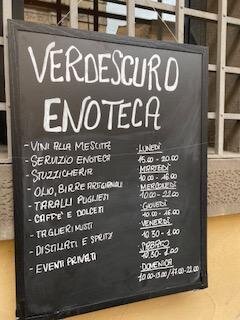 VERDESCURO
ENOTECA
- VINI ALLA MESCITA
- SERVIZIO ENOTECA
- STUZZICHERIA
- OLIO, BIRRE ARTIGIANALI
- TARALLI PUGLIESI
- CAFFÈ E DOLCETTI
- TAGLIERI MISTI
- DISTILLATI E SPRITZ
- EVENTI PRIVATI
LUNEDÌ
15.00 - 20.00
MARTEDÌ
10.00 - 16.00
MERCOLEDÌ
10.00 - 22.00
GIOVEDÌ
10.00 - 16.00
VENERDÌ
10.30 - 1.00
SABATO
10.30 - 1.00
DOMENICA
10.00-13.00/17.00-22.00